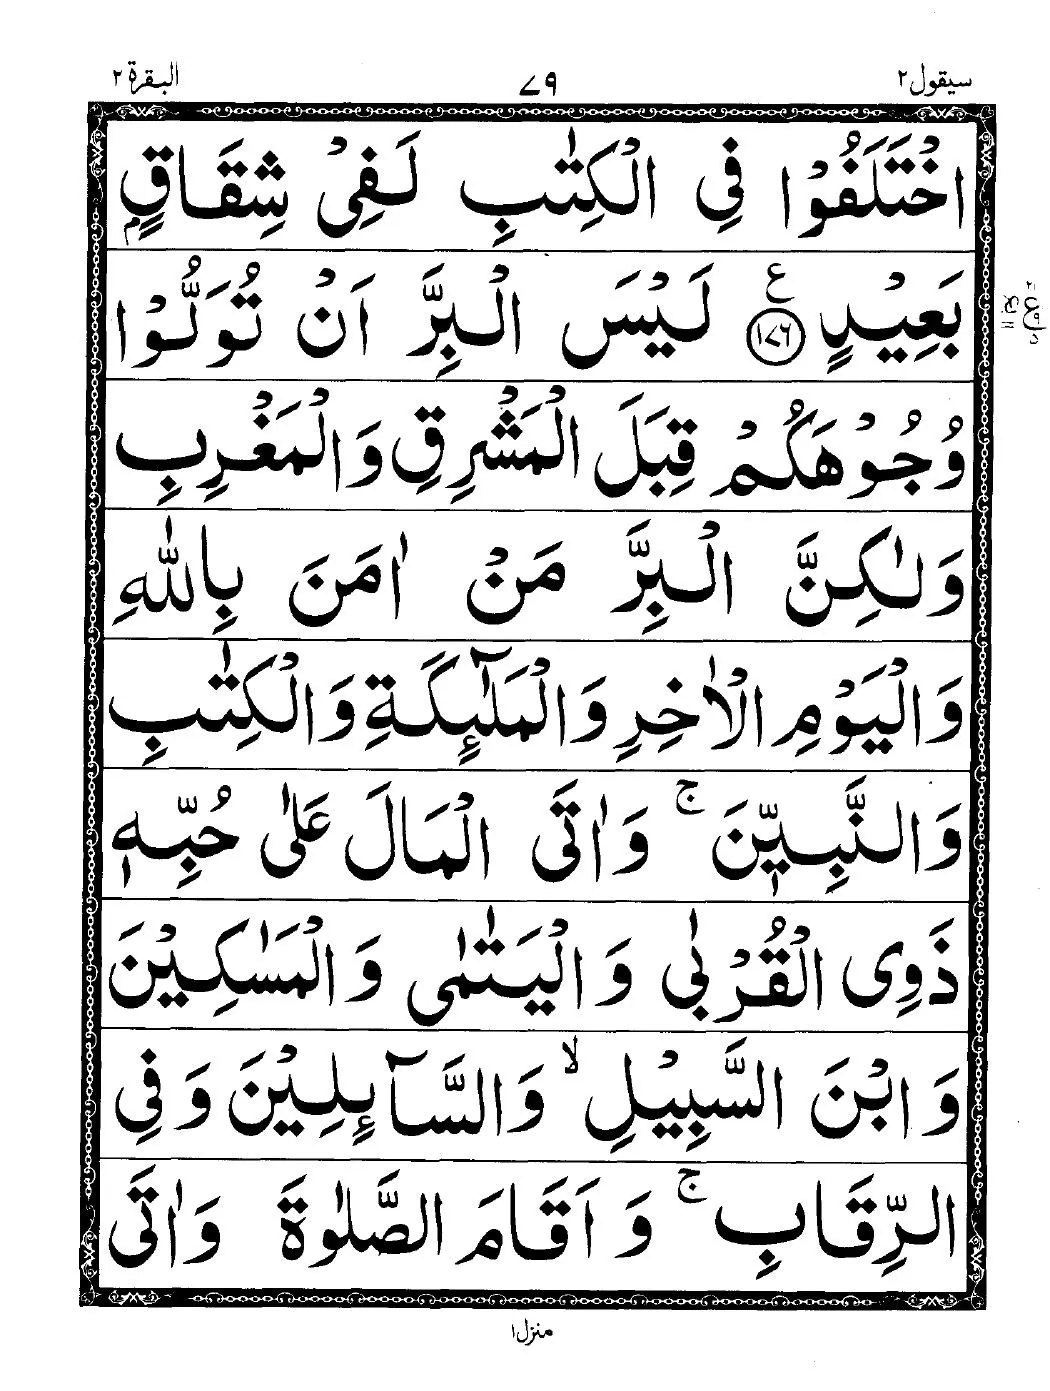 سيقول ٢
٧٩
البقرة ٢
اخْتَلَفُوْا فِي الْكِتٰبِ لَفِيْ شِقَاقٍۭ
بَعِيْدٍ ۧ ﴿١٧٦﴾ لَيْسَ الْبِرَّ اَنْ تُوَلُّوْا
وُجُوْهَكُمْ قِبَلَ الْمَشْرِقِ وَالْمَغْرِبِ
وَلٰكِنَّ الْبِرَّ مَنْ اٰمَنَ بِاللّٰهِ
وَالْيَوْمِ الْاٰخِرِ وَالْمَلٰٓئِكَةِ وَالْكِتٰبِ
وَالنَّبِيّٖنَ ۚ وَاٰتَى الْمَالَ عَلٰى حُبِّهٖ
ذَوِى الْقُرْبٰى وَالْيَتٰمٰى وَالْمَسٰكِيْنَ
وَابْنَ السَّبِيْلِ ۙ وَالسَّآئِلِيْنَ وَفِي
الرِّقَابِ ۚ وَاَقَامَ الصَّلٰوةَ وَاٰتَى
منزل ١